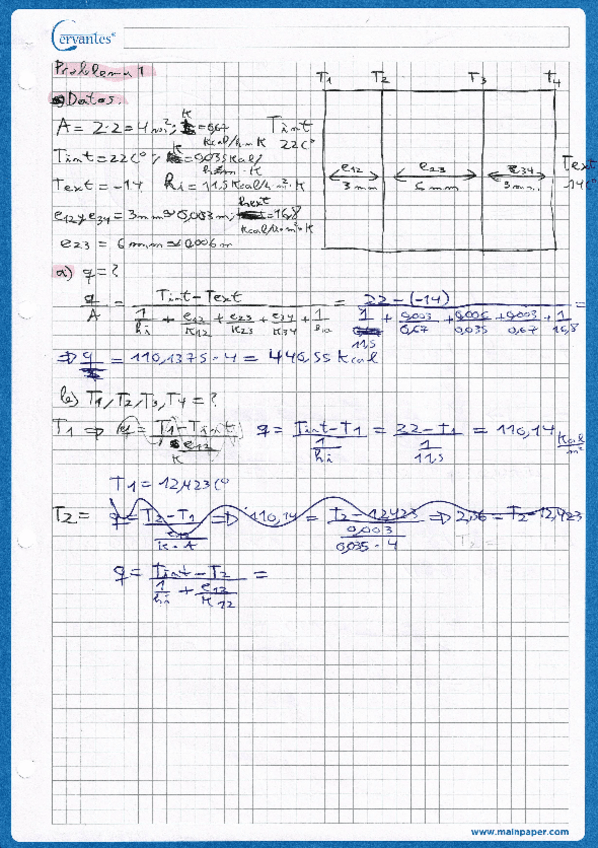 Cervantes®
Problema 1
Datos.
A = 2·2 = 4 m²; K = 0,67 kcal/h·m·K
Tint = 22 Cº; K = 0,035 Kcal/h·m·K
Text = -14 hi = 11,5 Kcal/h·m²·K
e12 y e34 = 3mm → 0,003 m; hext = 16,8 Kcal/h·m²·K
e23 = 6 mm → 0,006 m
T1 T2 T3 T4
Tint 22Cº
e12 3 mm
e23 6 mm
e34 3 mm
Text -14 Cº
a) q = ?
q/A = (Tint - Text)/(1/hi + e12/K12 + e23/K23 + e34/K34 + 1/) = (22 - (-14))/(1/11,5 + 0,003/0,67 + 0,006/0,035 + 0,003/0,67 + 1/16,8) =
⇒ q = 110,1375 · 4 = 440,55 Kcal
b) T1, T2, T3, T4 = ?
T1 ⇒ q = (T1 - Tint)/(e12/K) q = (Tint - T1)/(1/hi) = (22 - T1)/(1/11,5) = 110,14 Kcal/m²
T1 = 12,423 Cº
T2 = q = (T2 - T1)/(e12/K·A) ⇒ 110,14 = (T2 - 12,423)/(0,003/0,035·4) ⇒ 2,36 = T2 - 12,423
T2 =
q = (Tint - T2)/(1/hi + e12/K12) =
www.mainpaper.com